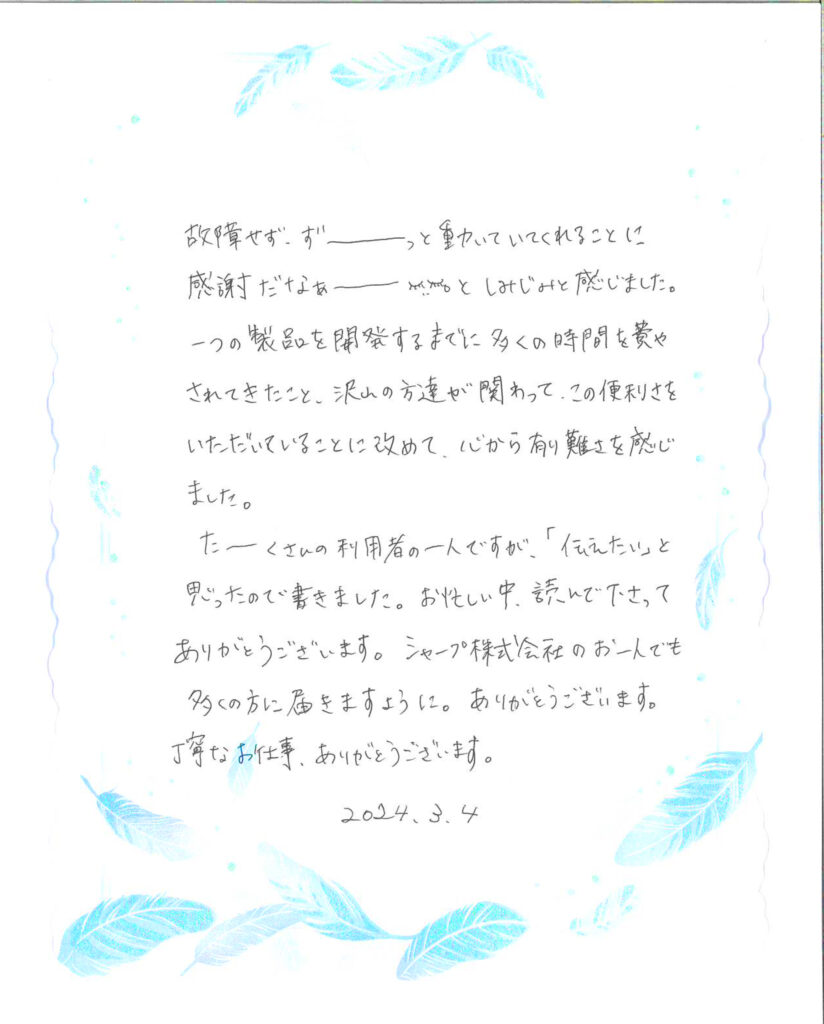 故障せず、ず―――っと動いていてくれることに
感謝だなぁ―――としみじみと感じました。
一つの製品を開発するまでに多くの時間を費や
されてきたこと、沢山の方達が関わって、この便利さを
いただいていることに改めて、心から有り難さを感じ
ました。
たーくさんの利用者の一人ですが、「伝えたい」と
思ったので書きました。お忙しい中、読んで下さって
ありがとうございます。シャープ株式会社のお一人でも
多くの方に届きますように。ありがとうございます。
丁寧なお仕事、ありがとうございます。
2024.3.4